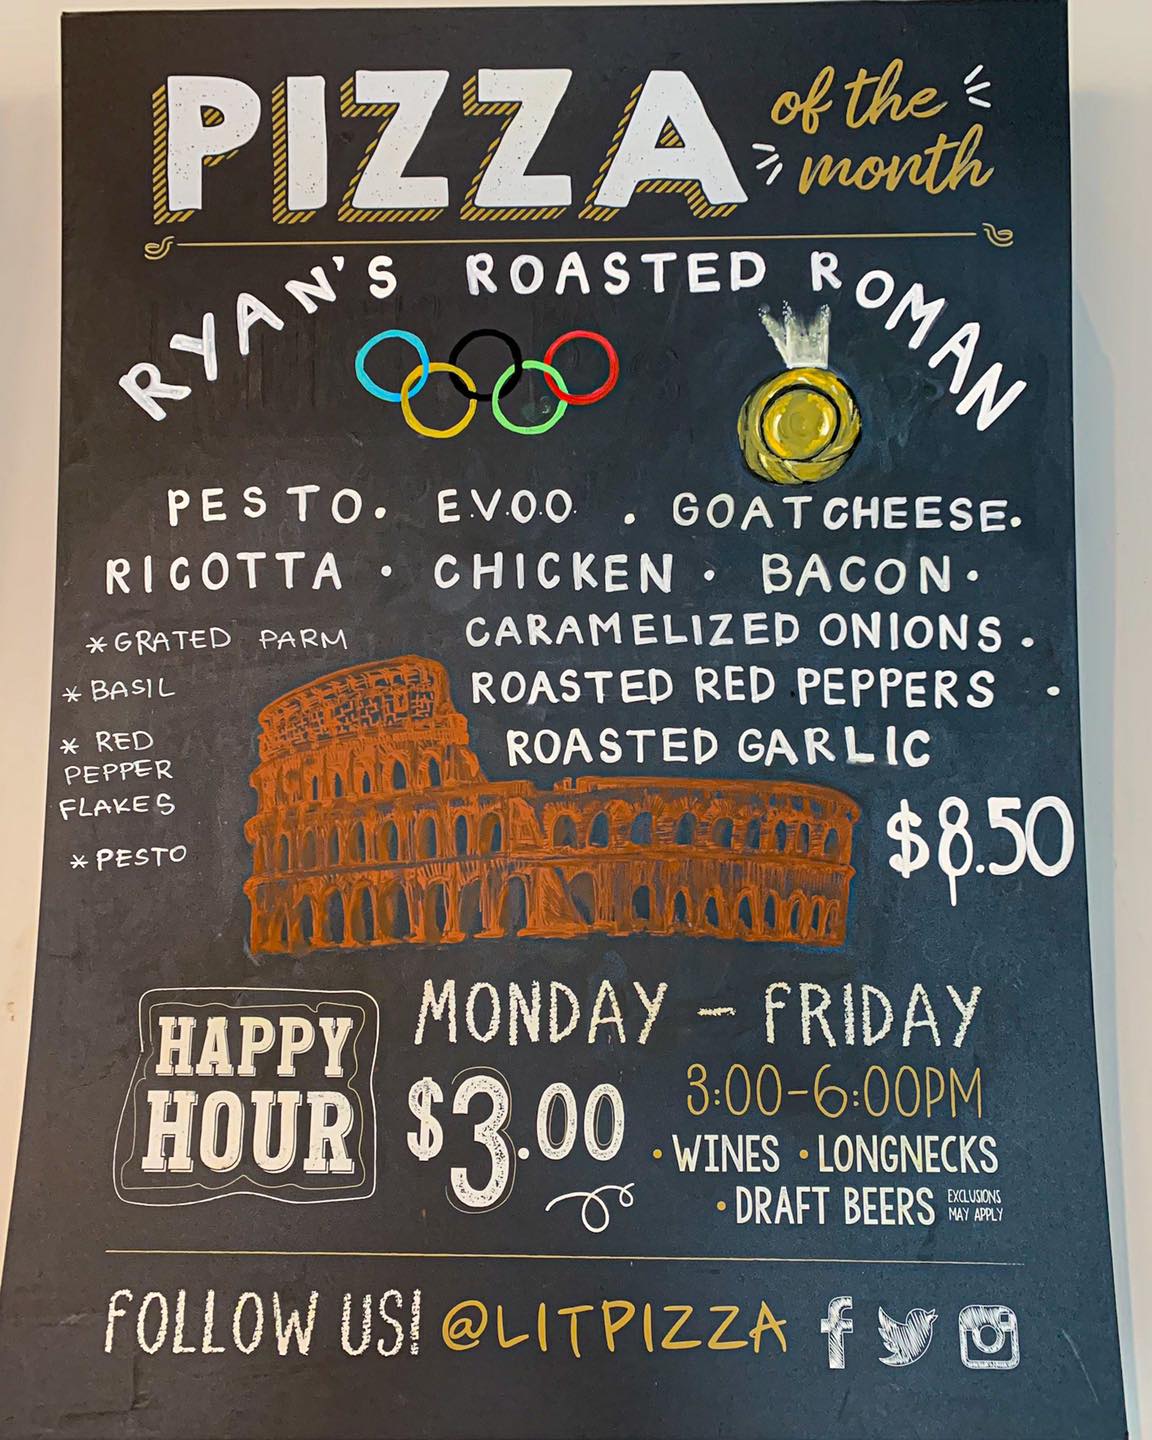 PIZZA of the month
RYAN'S ROASTED ROMAN
PESTO. E.V.O.O. . GOAT CHEESE.
RICOTTA • CHICKEN • BACON •
CARAMELIZED ONIONS .
ROASTED RED PEPPERS •
ROASTED GARLIC
* GRATED PARM
* BASIL
* RED
PEPPER
FLAKES
* PESTO
$8.50
HAPPY
HOUR
MONDAY – FRIDAY
$3.00
3:00-6:00PM
• WINES • LONGNECKS
• DRAFT BEERS
EXCLUSIONS
MAY APPLY
FOLLOW US! @LITPIZZA